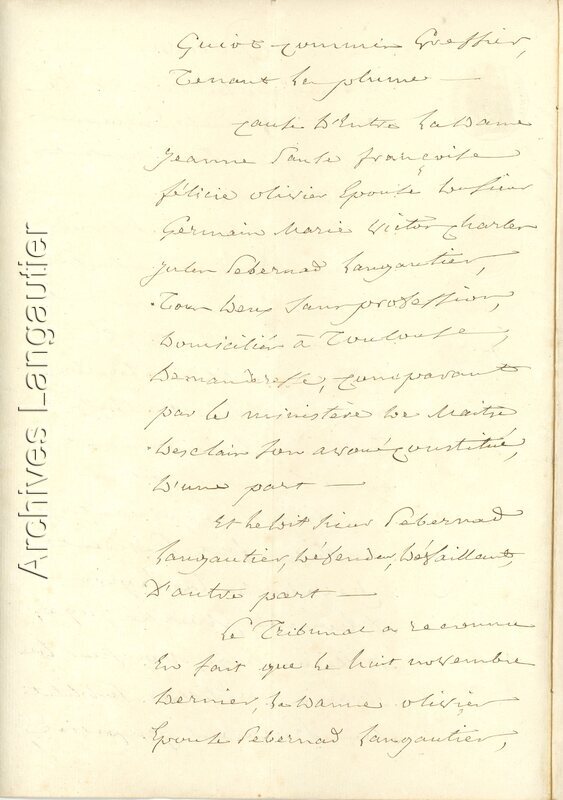 Guiot commis Greffier,
Tenant la plume —
Cause d'Entre la Dame
Jeanne Paule françoise
félicie olivier Epouse du sieur
Germain Marie Victor Charles
Jules Pebernad Langautier,
Tous Deux Sans profession,
Domiciliés à Toulouse,
Demanderesse, comparant
par le ministère De Maître
Desclair Son avoué constitué,
D'une part —
Et ledit sieur Pebernad
Langautier, Défendeur, Défaillant,
D'autre part —
Le Tribunal a reconnu
En fait que le huit novembre
Dernier, la Dame olivier
Epouse Pebernad Langautier,
Archives Langautier